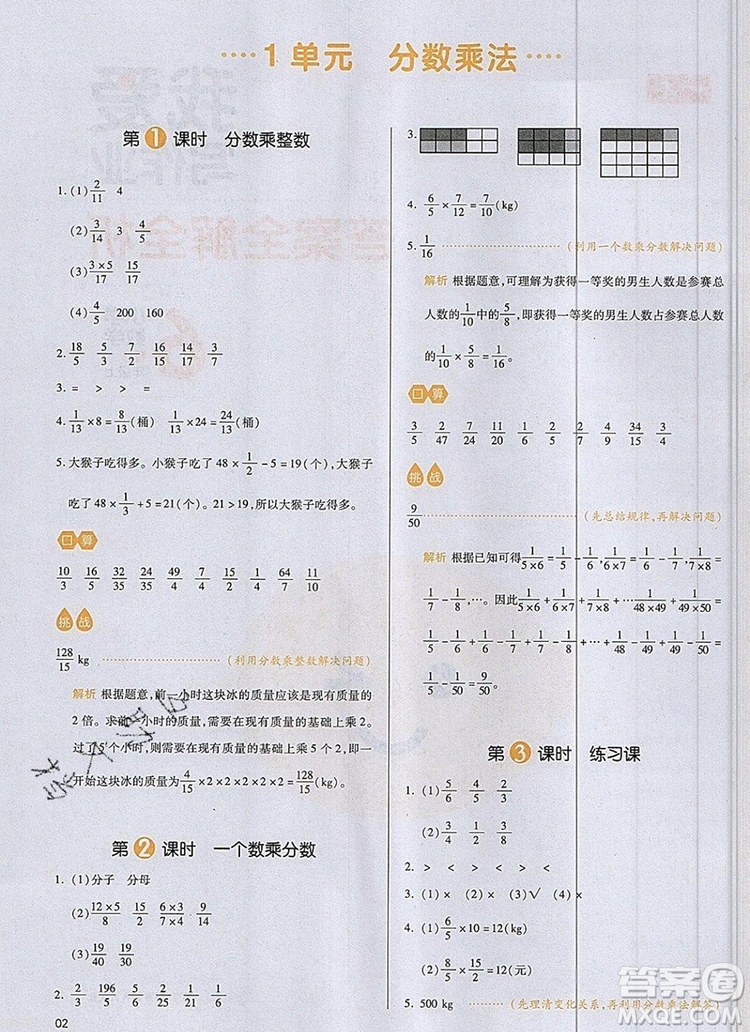 1单元 分数乘法
第1课时 分数乘整数
1. (1) 2/11 4
(2) 3/14 3 4/5
(3) 3×5/17 15/17
(4) 4/5 200 160
2. 18/5 3/13 7/12 14/15 4/7 3/7
3. = > > =
4. 1/13×8=8/13(桶) 1/13×24=24/13(桶)
5. 大猴子吃得多。小猴子吃了48×1/2-5=19(个),大猴子
吃了48×1/3+5=21(个)。21>19,所以大猴子吃得多。
口算
10/3 16/35 32/35 24/35 49/5 7/2 15/19 1/24 64/7 11/10
挑战
128/15 kg (利用分数乘整数解决问题)
解析 根据题意,前一小时这块冰的质量应该是现有质量的
2倍。求前一小时的质量,需要在现有质量的基础上乘2。
过了5个小时,则需要在现有质量的基础上乘5个2,即
开始这块冰的质量为4/15×2×2×2×2×2=128/15(kg)。
第2课时 一个数乘分数
1. (1)分子 分母
(2) 12×5/8 15/2 6×3/7×4 9/14
(3) 19/40 19/30
2. 2/5 196/5 5/26 1/2 2/21 1/4
02
3.
4. 6/5×7/12=7/10(kg)
5. 1/16 (利用一个数乘分数解决问题)
解析 根据题意,可理解为获得一等奖的男生人数是参赛总
人数的1/10中的5/8,即获得一等奖的男生人数占参赛总人数
的1/10×5/8=1/16。
口算
3/5 2/47 7/24 11/20 1/6 2/5 4/27 1/10 1/5 3/4
挑战
9/50 (先总结规律,再解决问题)
解析 根据已知可得1/5×6=1/5-1/6,1/6×7=1/6-1/7,1/7×8=
1/7-1/8,…。因此1/5×6+1/6×7+1/7×8+…+1/48×49+1/49×50=
1/5-1/6+1/6-1/7+1/7-1/8+…+1/48-1/49+1/49-1/50=
1/5-1/50=9/50。
第3课时 练习课
1. (1) 5/6 4/5 2/3
(2) 3/4 1/2 1/3
2. > < > < > <
3. (1)× (2)× (3)√ (4)×
4. (1) 6/5×10=12(kg)
(2) 8/5×15/2=12(元)
5. 500 kg (先理清变化关系,再利用分数乘法解答)
答案圈
MXQE.COM